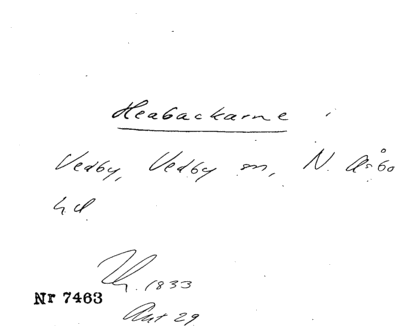 Heabackarne i
Vedby, Vedby sn, N. Åsbo
hd
1833
Nr 7463
Akt 29